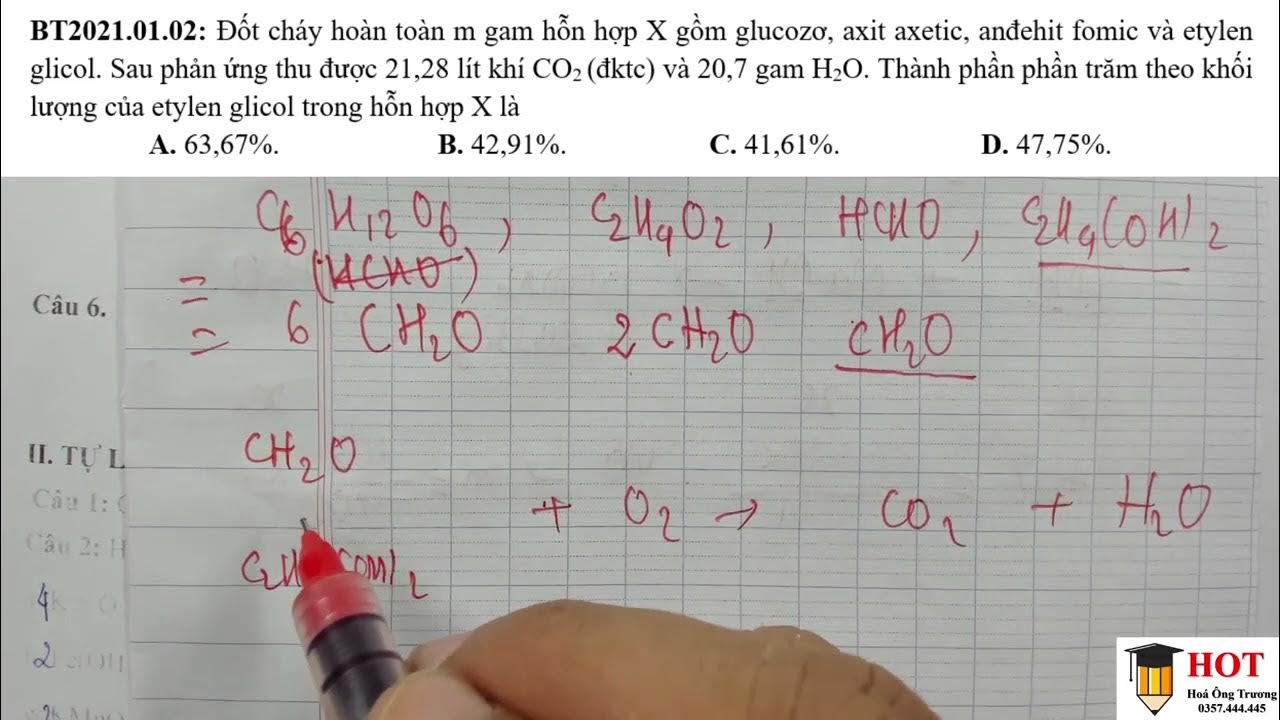 BT2021.01.02: Đốt cháy hoàn toàn m gam hỗn hợp X gồm glucozơ, axit axetic, anđehit fomic và etylen
glicol. Sau phản ứng thu được 21,28 lít khí CO₂ (đktc) và 20,7 gam H₂O. Thành phần phần trăm theo khối
lượng của etylen glicol trong hỗn hợp X là
A. 63,67%. B. 42,91%. C. 41,61%. D. 47,75%.
C₆H₁₂O₆, C₂H₄O₂, HCHO, C₂H₄(OH)₂
= (HCHO)
Câu 6.
= 6 CH₂O 2 CH₂O CH₂O
II. TỰ L
CH₂O
Câu 1:
+ O₂ → CO₂ + H₂O
Câu 2: H
4
2
HOT
Hoá Ông Trương
0357.444.445